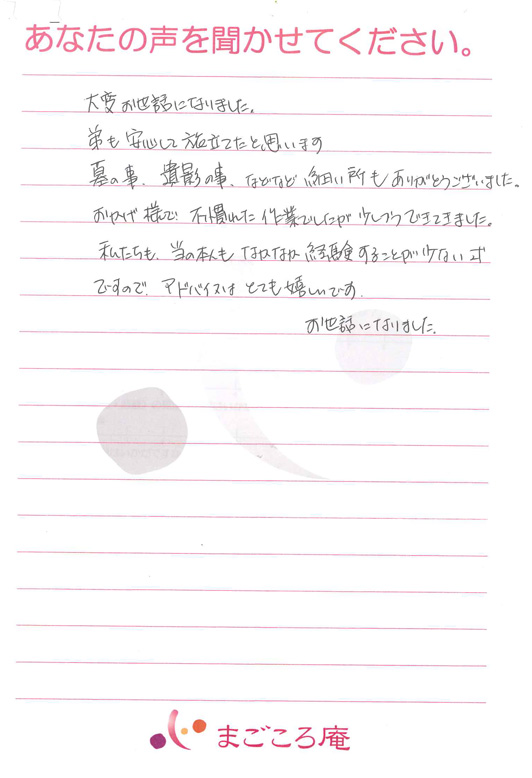 あなたの声を聞かせてください。
大変お世話になりました。
弟も安心して旅立てたと思います
墓の事、遺影の事、などなど細い所もありがとうございました。
おかげ様で不慣れた作業でしたが少しづつできてきました。
私たちも、当の本人もなかなか経験することが少ない式
ですので、アドバイスはとても嬉しいです。
お世話になりました。
まごころ庵